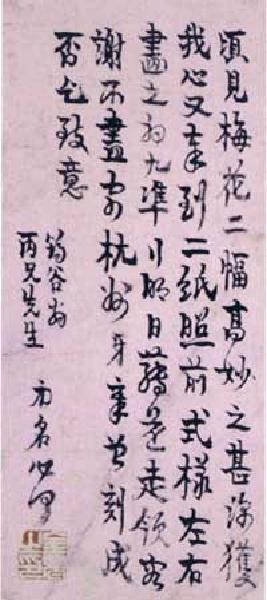 頃見梅花二幅高妙之甚深獲
我心又奉到二紙照前式樣左右
畫之初九準行明日走領容
謝不盡寄杭州牙章曾刻成
否乞致意
筠谷
丙兄先生
名心